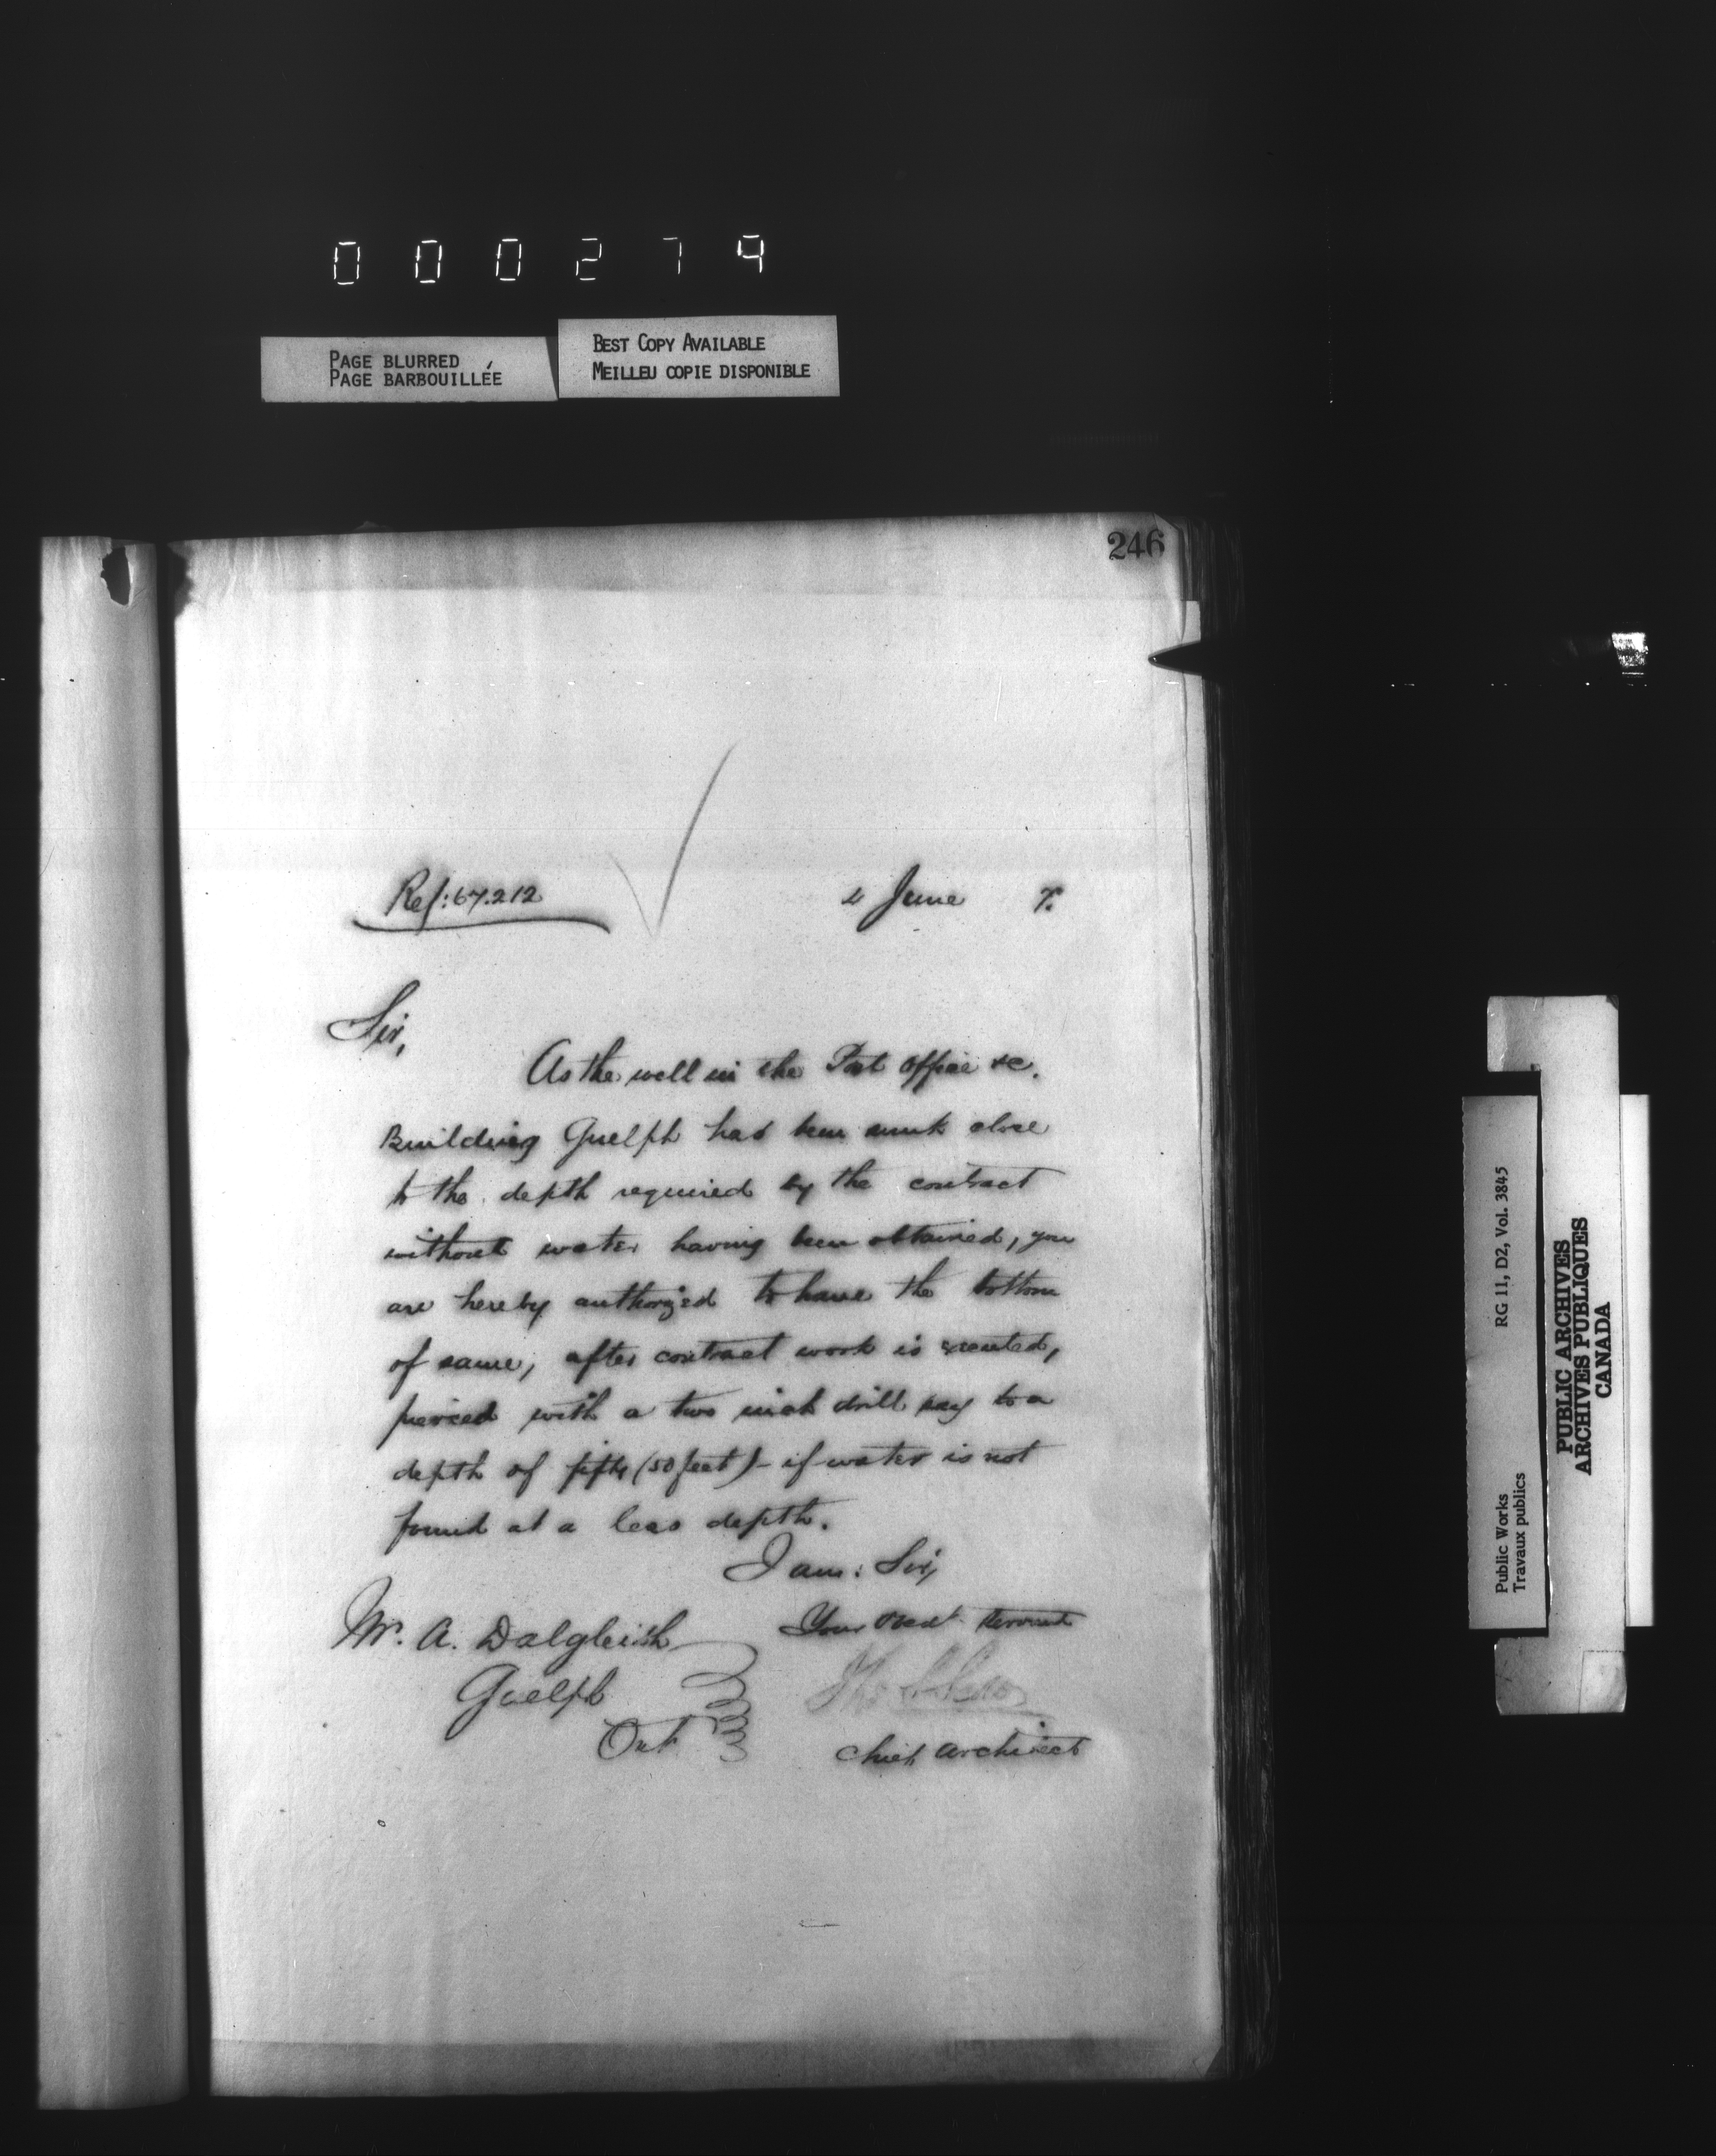 000279
PAGE BLURRED
PAGE BARBOUILLÉE
BEST COPY AVAILABLE
MEILLEU COPIE DISPONIBLE
246
Ref: 67.212
4 June 7.
Sir,
As the well in the Post Office &c.
Building Guelph has been sunk close
to the depth required by the contract
without water having been obtained, you
are hereby authorized to have the bottom
of same, after contract work is executed,
pierced with a two inch drill say to a
depth of fifty (50 feet) - if water is not
found at a less depth.
I am: Sir,
Your Obedt. Servant
Thos
Chief Architect
Mr. A. Dalgleish
Guelph
Ont
RG 11, D2, Vol. 3845
Public Works
Travaux publics
PUBLIC ARCHIVES
ARCHIVES PUBLIQUES
CANADA